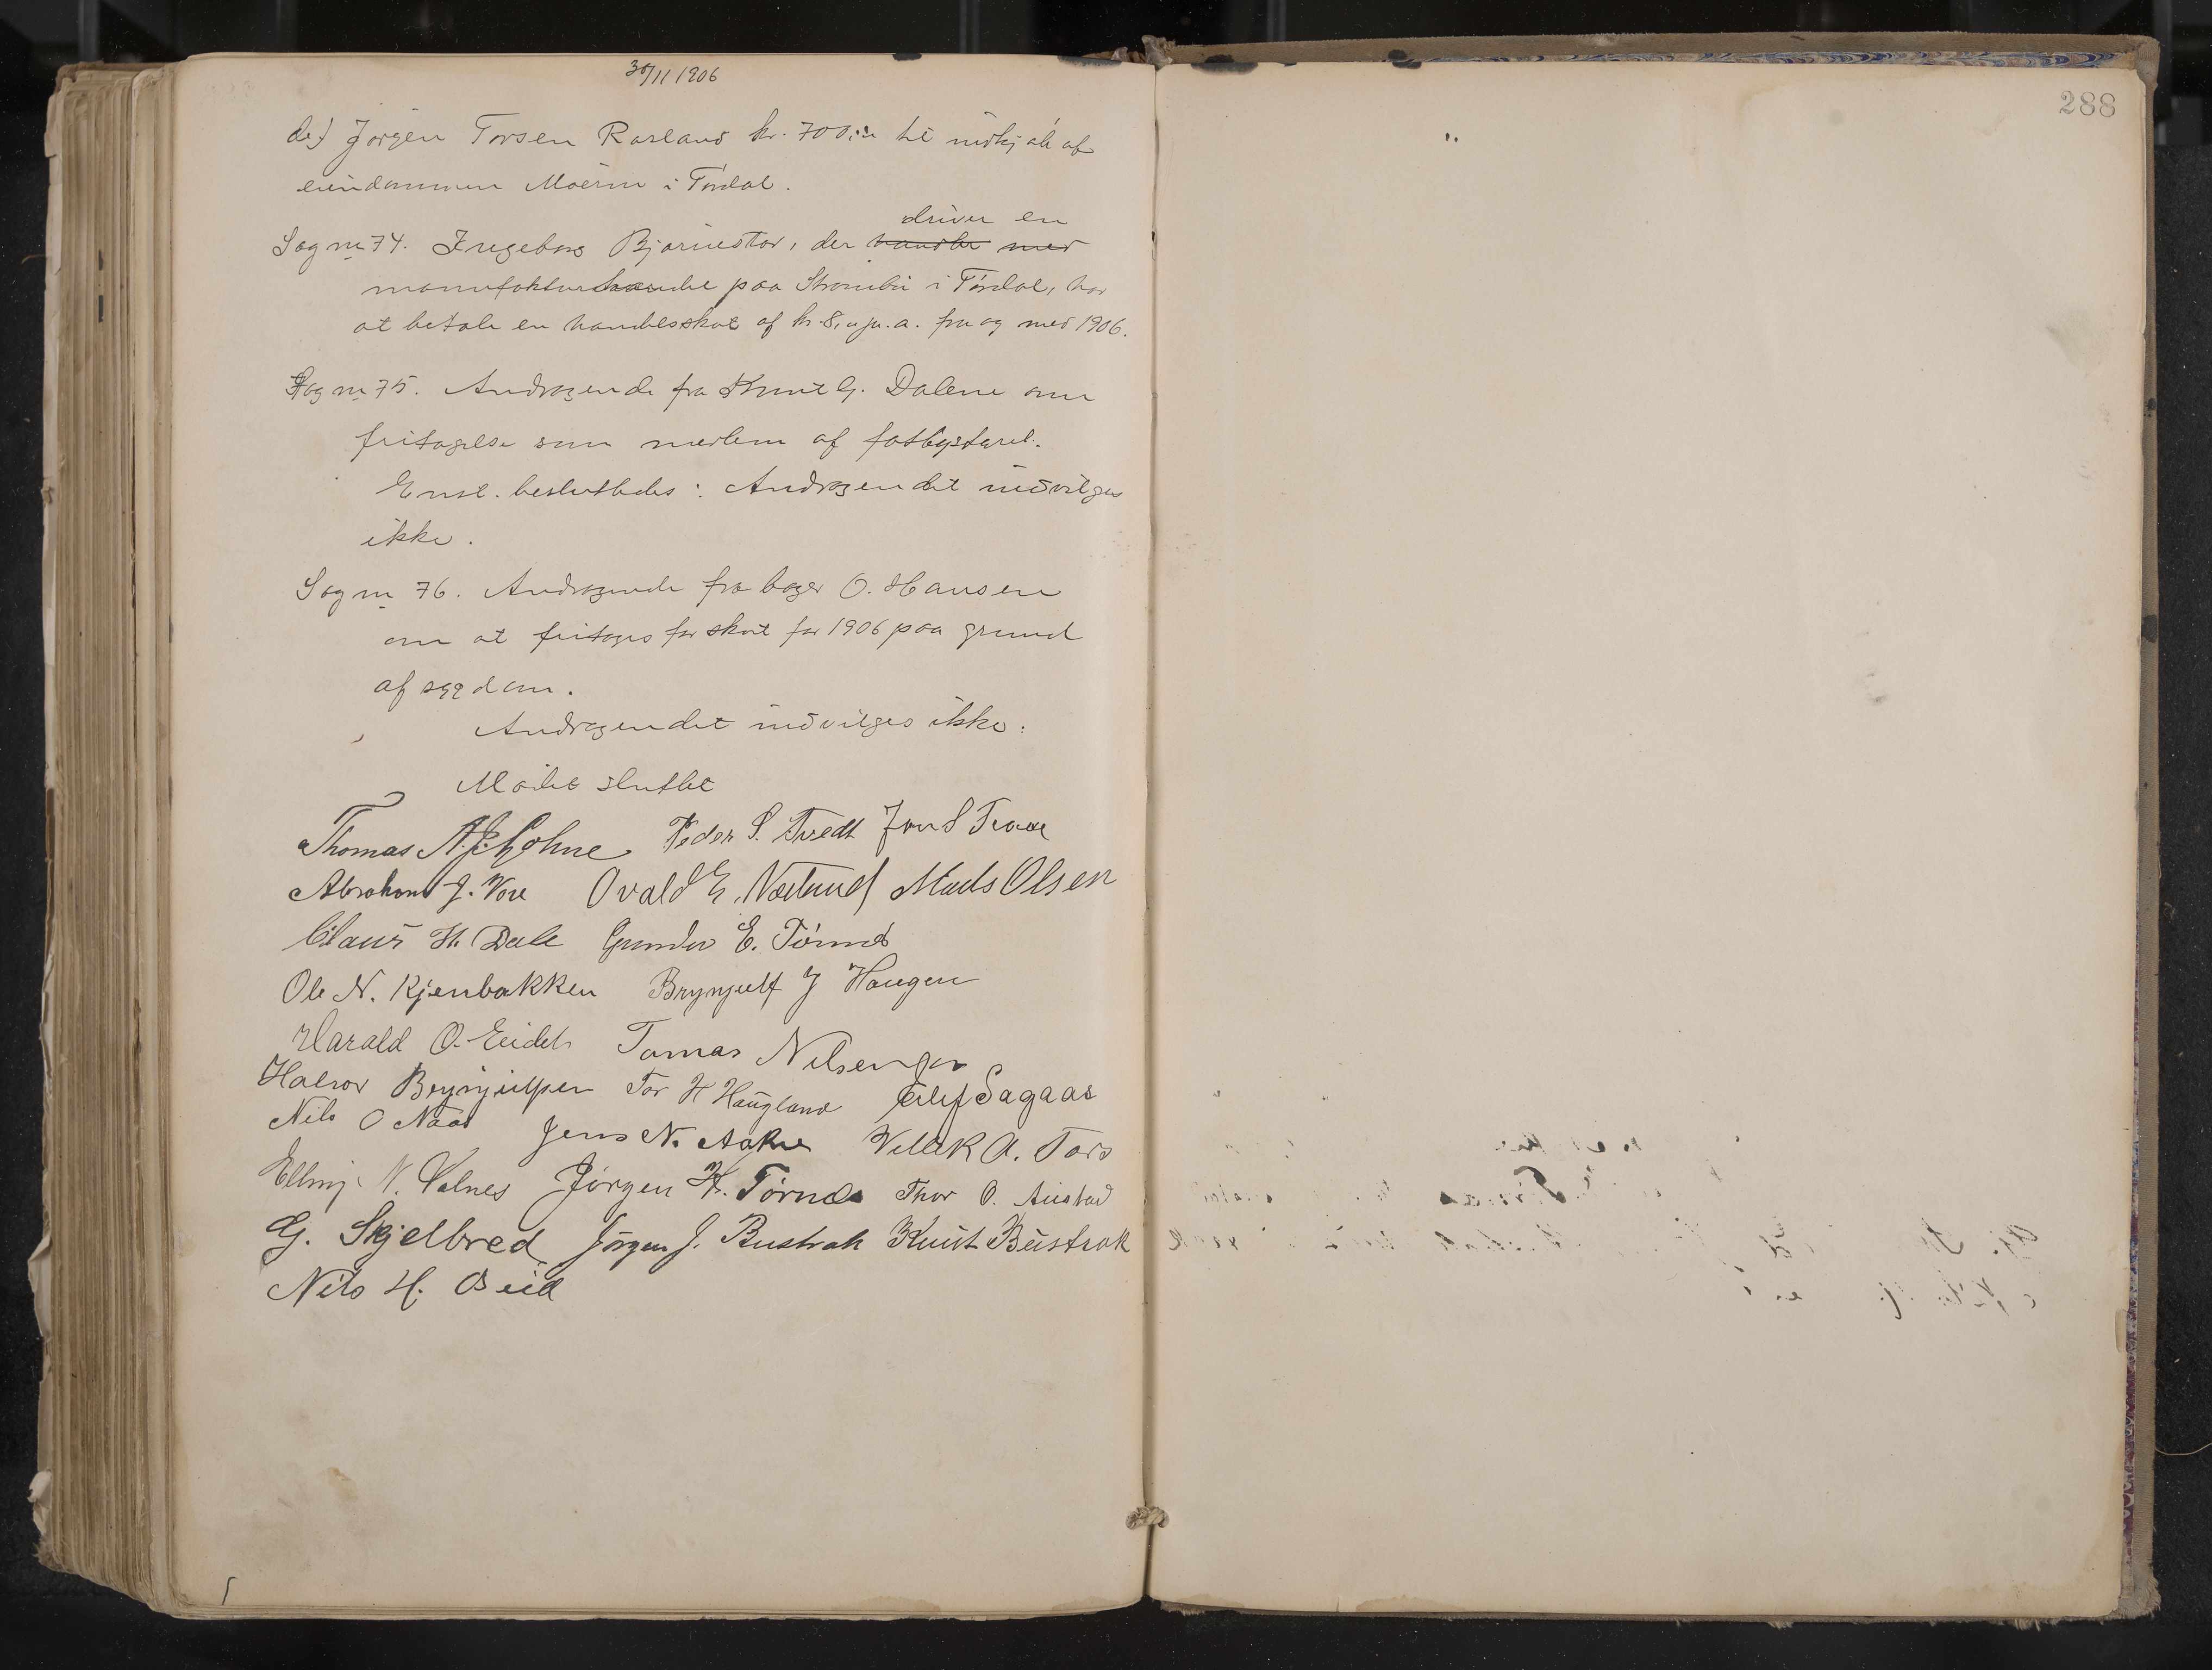 30/11 1906
288
de) Jørgen Torsen Rarland kr. 700,00 til indkjøb af
eiendommen Moerne i Tørdal.
driver en
Sag nr 74. Ingeborg Bjørnestøl, der handler med
manufakturhandel paa Strombu i Tørdal, har
at betale en handelsskat af kr. 8,00 pr. a. fra og med 1906.
Sag nr 75. Andragende fra Knut G. Dalene om
fritagelse som medlem af fattigstyret.
Enst. besluttedes: Andragendet indvilges
ikke.
Sag nr 76. Andragende fra bager O. Hansen
om at fritages for skat for 1906 paa grund
af sygdom.
Andragendet indvilges ikke.
Mødet sluttet
Thomas A. Lohne Peder S. Tvedt Jon S
Abraham J. Vore Ovald E. Næslund Mads Olsen
Claus H. Dale Gunder E. Tørnes
Ole N. Kjenbakken Brynjulf J Haugen
Harald O. Eidet Tomas Nilsen
Halvor Brynjulfsen Tor H Haugland Sagaas
Nils O Naas Jens N. Aakre A. Tors
Elling N. Valnes Jørgen H. Tørnes Thor O. Austad
G. Skjelbred Jørgen J. Bustrak Knut Bustrak
Nils H. Beid